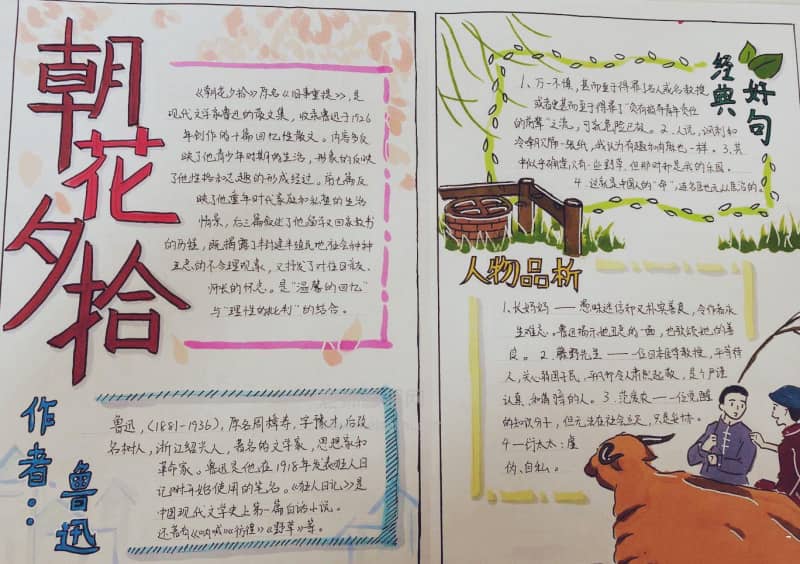 朝花夕拾
《朝花夕拾》原名《旧事重提》,是
现代文学家鲁迅的散文集,收录鲁迅于1926
年创作的十篇回忆性散文。内容多反
映了他青少年时期的生活,形象的反映
了他性格和志趣的形成经过。前七篇反
映了他童年时代在家庭和私塾的生活
情景,后三篇叙述了他留学又回家教书
的历程,既揭露了半封建半殖民地社会种种
丑恶的不合理现象,又抒发了对往日亲友、
师长的怀念。是“温馨的回忆”
与“理性的批判”的结合。
作者:鲁迅
鲁迅,(1881-1936),原名周樟寿,字豫才,后改
名树人,浙江绍兴人,著名的文学家,思想家和
革命家。鲁迅是他在1918年发表狂人日
记时开始使用的笔名。《狂人日记》是
中国现代文学史上第一篇白话小说。
还著有《呐喊》《彷徨》《野草》等。
经典好句
1、万一不慎,甚而至于得罪了名人或名教授,
或者更甚而至于得罪了“负有指导青年责任
的前辈”之流,可就危险已极。2、人说,讽刺和
冷嘲只隔一张纸,我以为有趣和肉麻也一样。3、其
中似乎确凿只有一些野草,但那时却是我的乐园。
4、这就是中国人的“命”,连名目也无从臆造的。
人物品析
1、长妈妈——愚昧迷信却又朴实善良,令作者永
生难忘。鲁迅揭示她丑恶的一面,也歌颂她的善
良。2、藤野先生——一位日本医学教授,平等待
人,关心弱国子民,
认真、和蔼的人。3、范爱农——一位觉醒
的知识分子,但无法在社会立足,
4——衍太太:虚
伪、自私。